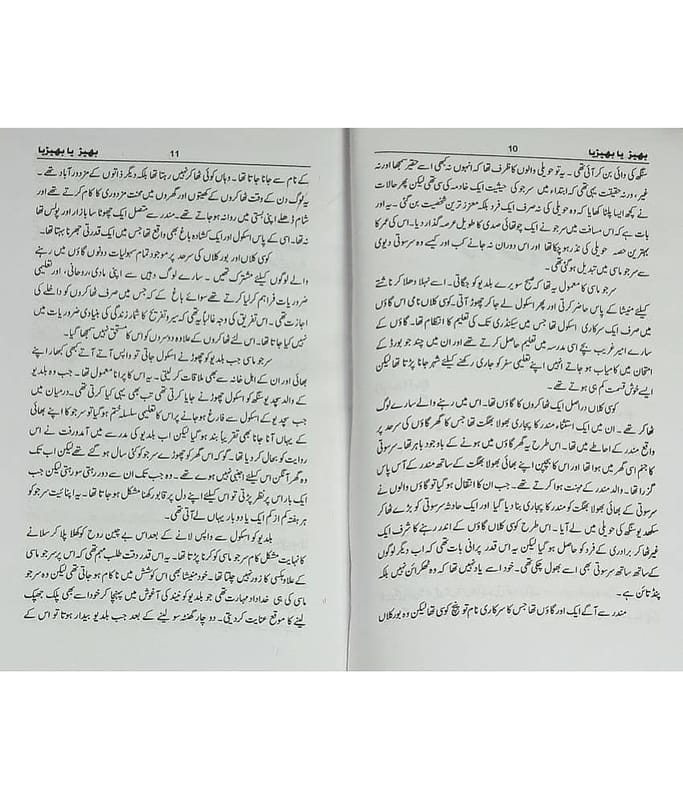 بھیڑ یا بھیڑیا 10
سنگھ کی دائی بن کر آئی تھی ۔ یہ تو حویلی والوں کا ظرف تھا کہ انہوں نہ کبھی اسے حقیر سمجھا اور نہ
غیر، ورنہ حقیقت یہی تھی کہ ابتداء میں سرجو کی حیثیت ایک خادمہ کی سی تھی لیکن پھر حالات
نے کچھ ایسا پلٹا کھایا کہ وہ حویلی کی نہ صرف ایک فرد بلکہ معزز ترین شخصیت بن گئی ۔ یہ اور
بات ہے کہ اس مسافت میں سرجو نے ایک چوتھائی صدی کا طویل عرصہ گذار دیا۔ اس کی عمر کا
بہترین حصہ حویلی کی نذر ہو چکا تھا اور اس دوران نہ جانے کب اور کیسے وہ سرسوتی دیوی
سے سرجو ماسی میں تبدیل ہو گئی تھی ۔
سرجو ماسی کا معمول یہ تھا کہ صبح سویرے بلدیو کو جگاتی ۔ اسے نہلا دھلا کر ناشتے
کیلئے منیشا کے پاس حاضر کرتی اور پھر اسکول لے جا کر چھوڑ آتی۔ کوسی کلاں نامی اس گاؤں
میں صرف ایک سرکاری اسکول تھا جس میں سیکنڈری تک کی تعلیم کا انتظام تھا۔ گاؤں کے
سارے امیر غریب بچے اسی مدرسہ میں تعلیم حاصل کرتے تھے اور ان میں چند جو بورڈ کے
امتحان میں کامیاب ہو جاتے انہیں اپنے تعلیمی سفر کو جاری رکھنے کیلئے شہر جانا پڑتا تھا لیکن
ایسے خوش قسمت کم ہی ہوتے تھے ۔
کوسی کلاں دراصل ایک ٹھاکروں کا گاؤں تھا۔ اس میں رہنے والے سارے لوگ
ٹھاکر تھے ۔ ان میں ایک استثناء مندر کا پجاری بھولا بھگت تھا جس کا گھر گاؤں کی سرحد پر
واقع مندر کے احاطے میں تھا۔ اس طرح یہ گھر گاؤں میں ہونے کے باوجود باہر تھا۔ سرسوتی
کا جنم اسی گھر میں ہوا تھا اور اس کا بچپن اپنے بھائی بھولا بھگت کے ساتھ مندر کے آس پاس
گزرا تھا۔ والد مندر کے مہنت ہوا کرتے تھے ۔ جب ان کا انتقال ہو گیا تو گاؤں والوں نے
سرسوتی کے بھائی بھولا بھگت کو مندر کا پجاری بنا دیا گیا اور ایک حادثہ سرسوتی کو بڑے ٹھاکر
سکھدیو سنگھ کی حویلی میں لے آیا۔ اس طرح کوسی کلاں گاؤں کے اندر رہنے کا شرف ایک
غیر ٹھاکر برادری کے فرد کو حاصل ہو گیا لیکن یہ اس قدر پرانی بات تھی کہ اب دیگر لوگوں
کے ساتھ ساتھ سرسوتی بھی اسے بھول چکی تھی۔ خود اسے یاد نہیں تھا کہ وہ ٹھکرائن نہیں بلکہ
پنڈتائن ہے ۔
مندر سے آگے ایک اور گاؤں تھا جس کا سرکاری نام تو پنچ کوسی تھا لیکن وہ بور کلاں
بھیڑ یا بھیڑیا 11
کے نام سے جانا جاتا تھا۔ وہاں کوئی ٹھاکر نہیں رہتا تھا بلکہ دیگر ذاتوں کے مزدور آباد تھے ۔
یہ لوگ دن کے وقت ٹھاکروں کے کھیتوں اور گھروں میں محنت مزدوری کا کام کرتے تھے اور
شام ڈھلے اپنی بستی میں روانہ ہو جاتے تھے ۔ مندر سے متصل ایک چھوٹا سا بازار اور پولس تھا
نہ تھا۔ اسی کے پاس اسکول اور ایک کشادہ باغ بھی واقع تھا جس میں ایک قدرتی جھرنا بہتا تھا۔
کوسی کلاں اور بور کلاں کی سرحد پر موجود تمام سہولیات دونوں گاؤں میں رہنے
والے لوگوں کیلئے مشترک تھیں ۔ سارے لوگ وہیں سے اپنی مادی، روحانی ، اور تعلیمی
ضروریات فراہم کر لیا کرتے تھے سوائے باغ کے کہ جس میں صرف ٹھاکروں کو داخلے کی
اجازت تھی ۔ اس تفریق کی وجہ غالباً یہ تھی کہ سیر و تفریح کا شمار زندگی کی بنیادی ضروریات میں
نہیں کیا جاتا تھا۔ اس لئے ٹھاکروں کے علاوہ دوسروں کو اس کا مستحق نہیں سمجھا گیا۔
سرجو ماسی جب بلدیو کو چھوڑنے اسکول جاتی تو واپس آتے آتے کبھی کبھار اپنے
بھائی اور ان کے اہل خانہ سے بھی ملاقات کر لیتی ۔ یہ اس کا پرانا معمول تھا۔ جب وہ بلدیو
کے والد سچدیو سنگھ کو اسکول چھوڑنے جایا کرتی تھی تب بھی یہی کیا کرتی تھی۔ درمیان میں
جب سچدیو کے اسکول سے فارغ ہو جانے پر اس کا تعلیمی سلسلہ ختم ہو گیا تو سرجو کا اپنے بھائی
کے یہاں آنا جانا بھی تقریباً بند ہو گیا لیکن اب بلدیو کی مدرسے میں آمد ورفت نے اس
روایت کو بحال کر دیا تھا۔ گو کہ اس گھر کو چھوڑے سرجو کو کئی سال ہو گئے تھے لیکن اب تک
وہ گھر آنگن اس کیلئے اجنبی نہیں ہوئے تھے ۔ وہ جب تک ان سے دور رہتی سو رہتی لیکن جب
ایک بار اس پر نظر پڑتی تو اس کیلئے اپنے دل پر قابو رکھنا مشکل ہو جاتا تھا۔ یہ اپنائیت سرجو کو
ہر ہفتہ کم از کم ایک یا دو بار یہاں لے آتی تھی ۔
بلدیو کو اسکول سے واپس لانے کے بعد اس بے چین روح کو کھلا پلا کر سلانے
کا نہایت مشکل کام سرجو ماسی کو کرنا پڑتا تھا۔ یہ اس قدر دقت طلب مہم تھی کہ اس پر سرجو ماسی
کے علاوہ کسی کا زور نہیں چلتا تھا۔ خود منیشا بھی اس کوشش میں ناکام ہو جاتی تھی لیکن وہ سرجو
ماسی کی ہی خداداد مہارت تھی جو بلدیو کو نیند کی آغوش میں پہنچا کر خود اسے بھی پلک جھپک
لینے کا موقع عنایت کر دیتی ۔ دو چار گھنٹہ سو لینے کے بعد جب بلدیو بیدار ہوتا تو اس کے